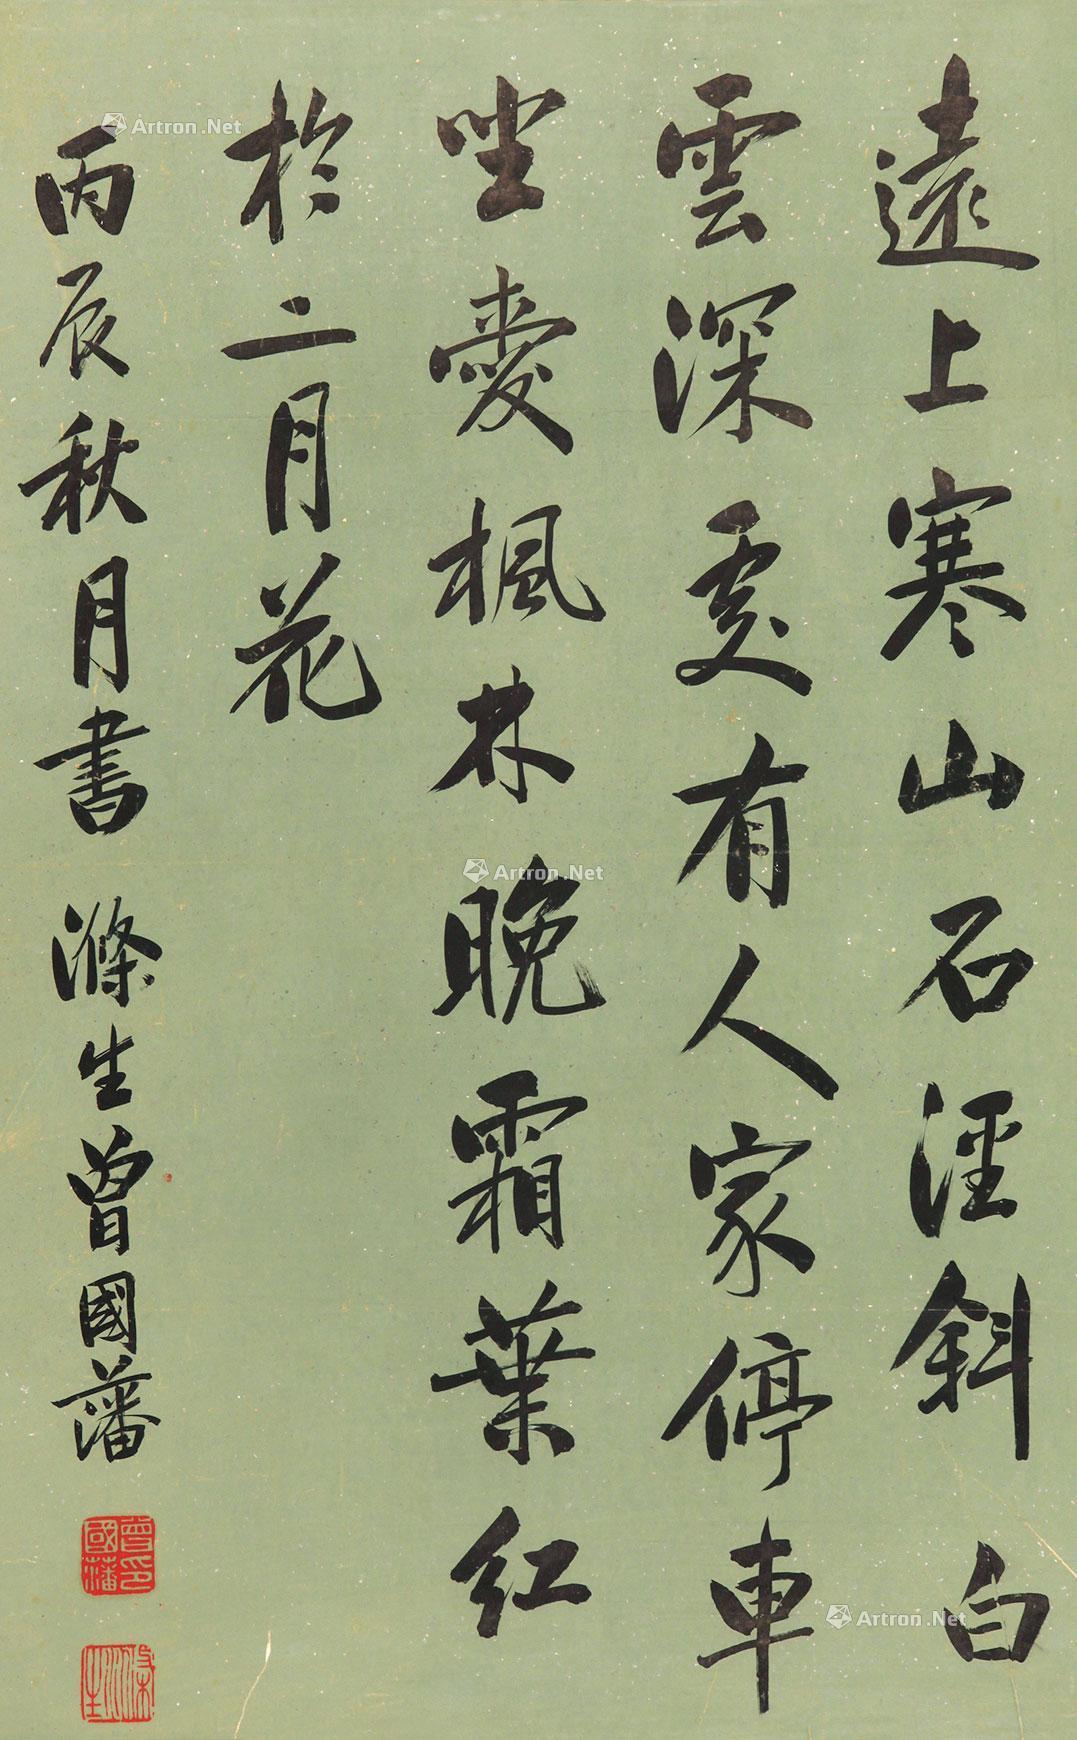 遠上寒山石涇斜白
雲深處有人家停車
坐愛楓林晚霜葉紅
於二月花
丙辰秋月書 滌生曾國藩
曾國藩印
滌生
Artron.Net
Artron.Net
Artron.Net